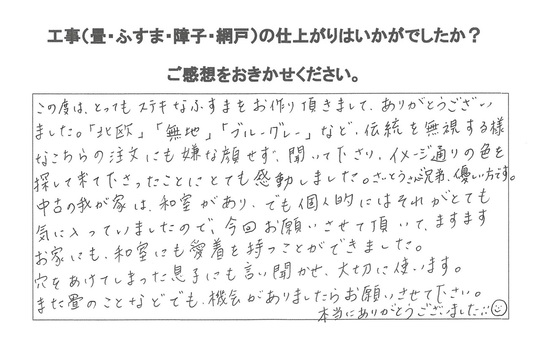 工事(畳・ふすま・障子・網戸)の仕上がりはいかがでしたか?
ご感想をおきかせください。
この度は、とってもステキなふすまをお作り頂きまして、ありがとうござい
ました。「北欧」「無地」「ブルーグレー」など、伝統を無視する様
なこちらの注文にも嫌な顔せず、聞いて下さり、イメージ通りの色を
探して来て下さったことにとても感動しました。さとうさん兄弟、優しい方です。
中古の我が家は、和室があり、でも個人的にはそれがとても
気に入っていましたので、今回お願いさせて頂いて、ますます
お家にも、和室にも愛着を持つことができました。
穴をあけてしまった息子にも言い聞かせ、大切に使います。
また畳のことなどでも、機会がありましたらお願いさせて下さい。
本当にありがとうございました